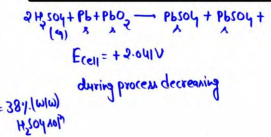 2H2SO4 + Pb + PbO2 ⟶ PbSO4 + PbSO4 +
(aq) s s s s
Ecell = + 2.041V
during process decreasing
= 38% (w/w)
H2SO4 solⁿ